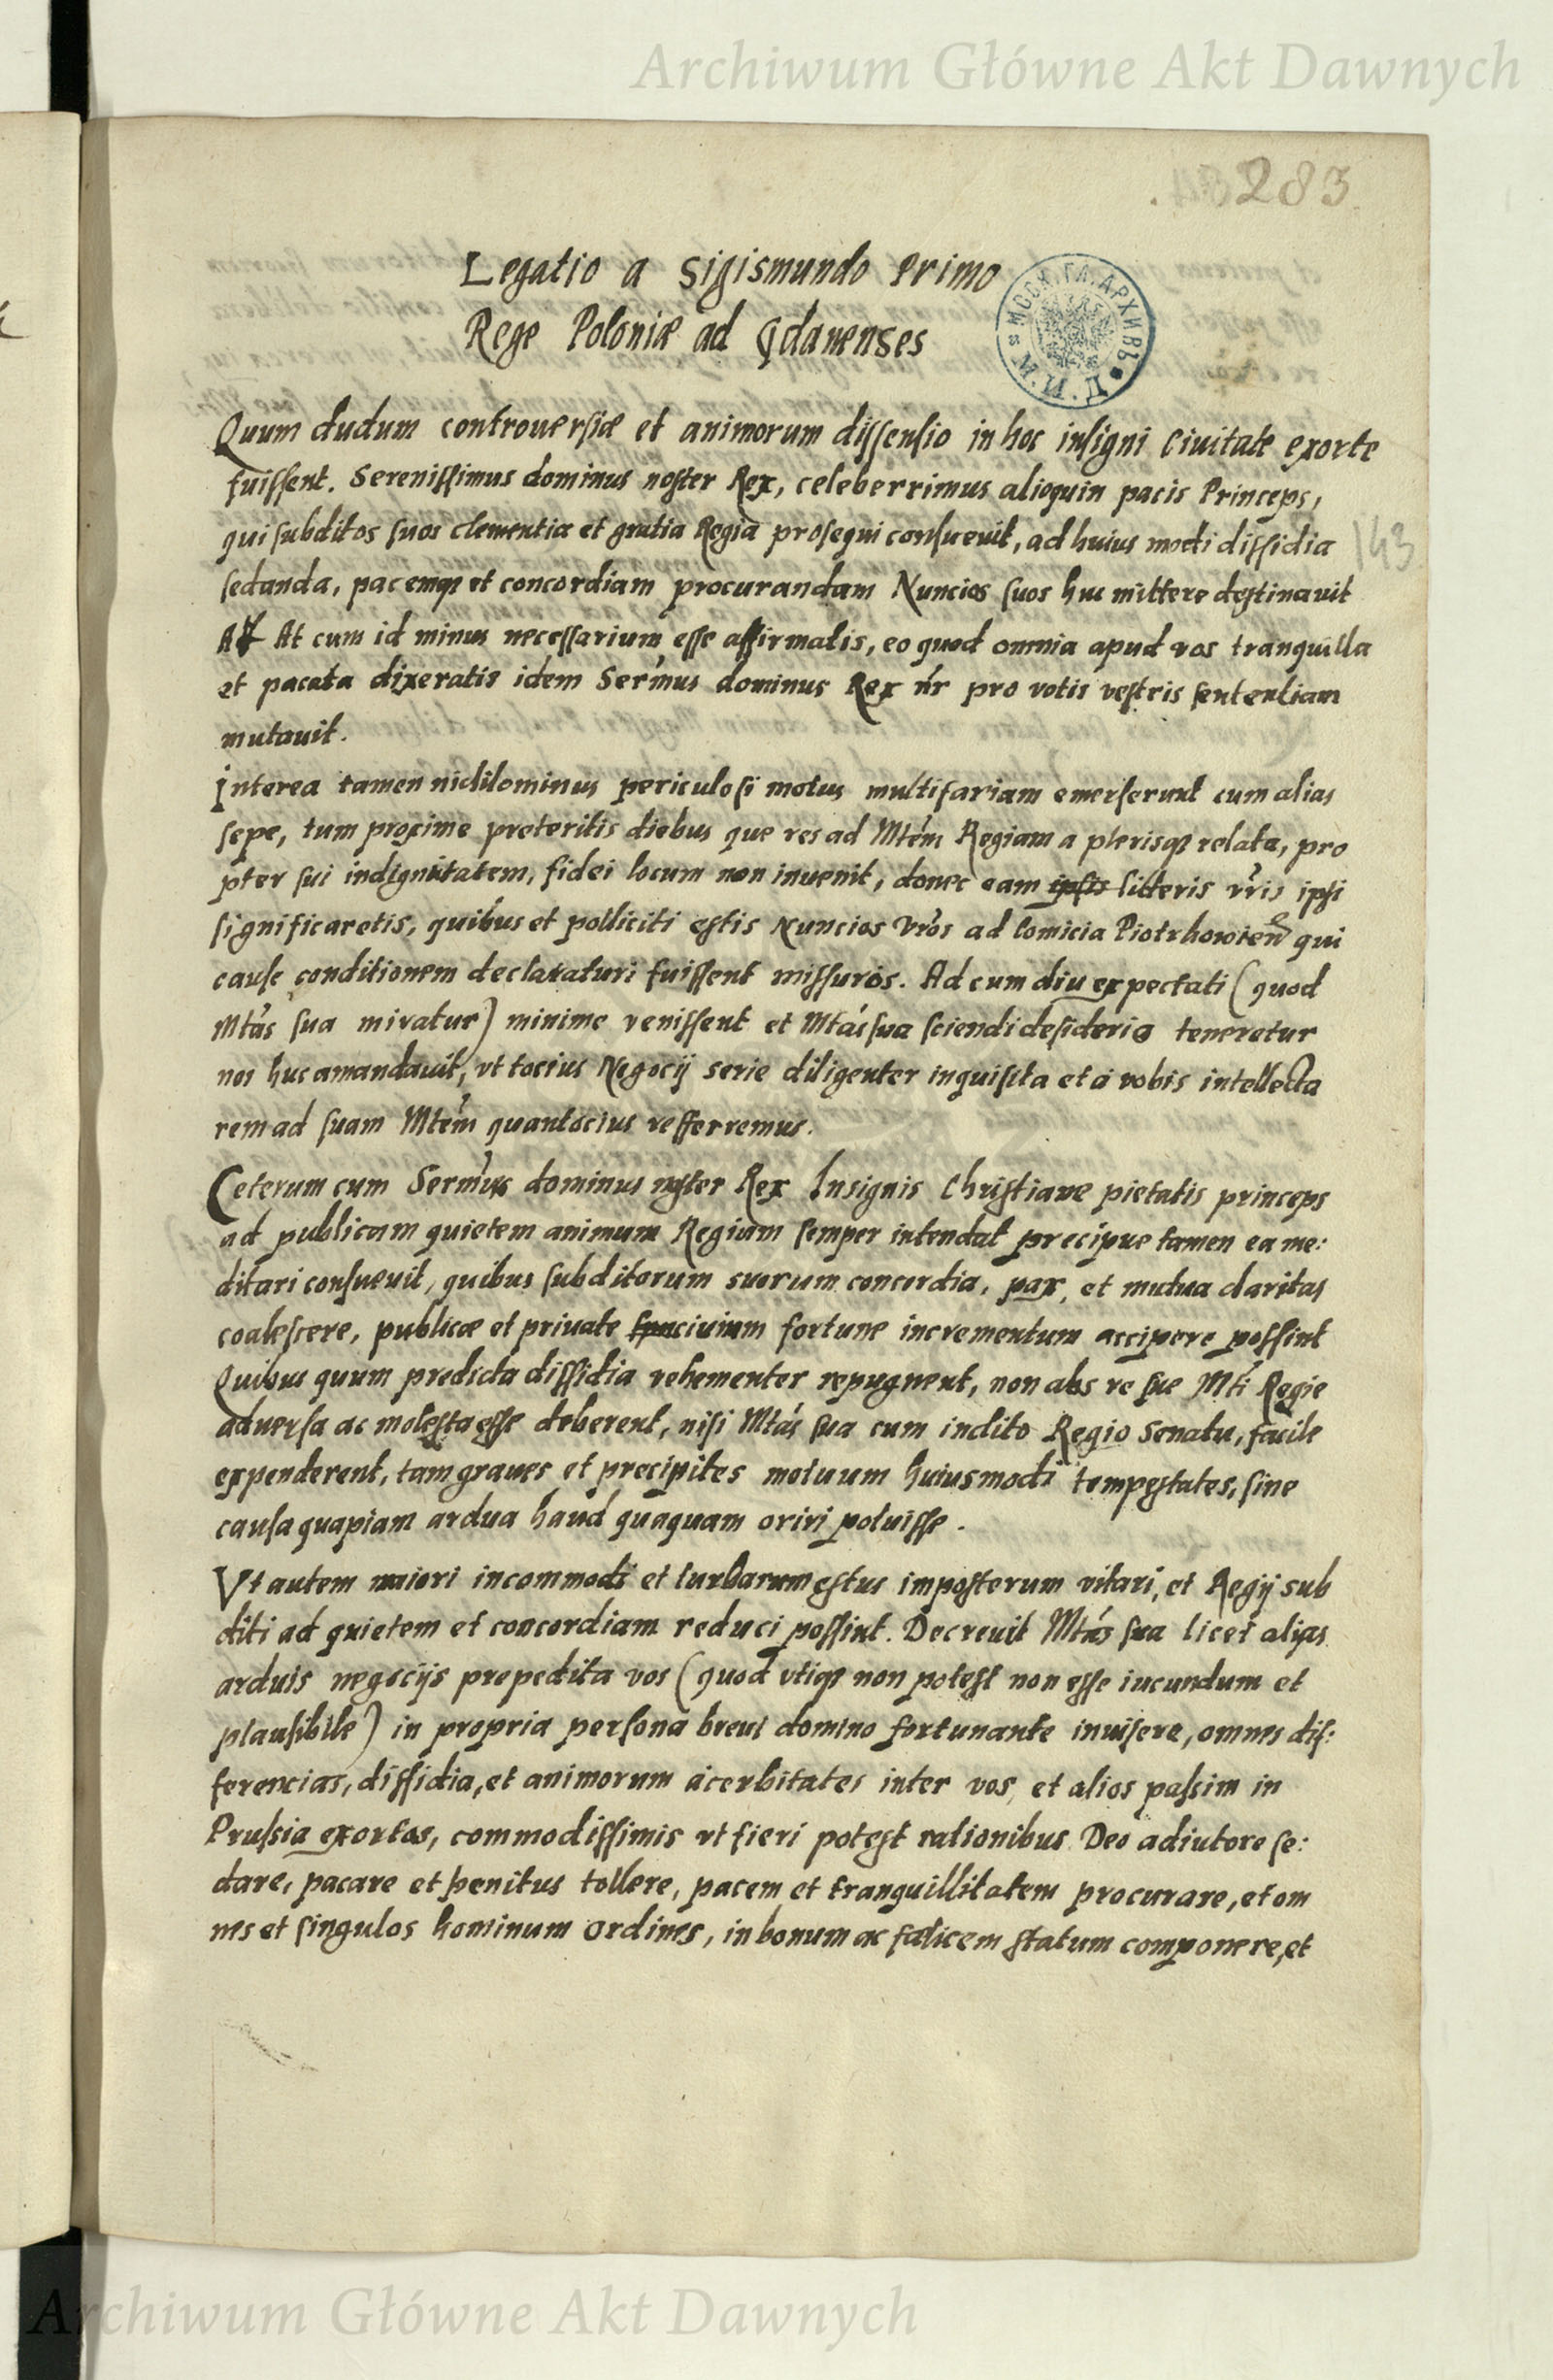 Archiwum Główne Akt Dawnych
283
Legatio a Sigismundo Primo
Rege Poloniæ ad Gdanenses
МОСК. ГЛ. АРХИВЪ
Quum dudum controuersiæ et animorum dissensio in hoc insigni Ciuitate exorte
fuissent. Serenissimus dominus noster Rex, celeberrimus alioquin pacis Princeps,
qui subditos suos clementia et gratia Regia prosequi consueuit, ad huius modi dissidia
143
sedanda, pacemq3 et concordiam procurandam Nuncios suos huc mittere destinauit
At cum id minus necessarium esse affirmatis, eo quod omnia apud vos tranquilla
et pacata dixeratis idem Sermus dominus Rex nr pro votis vestris sententiam
mutauit.
Interea tamen nichilominus periculosi motus multifariam emerserunt cum alias
sepe, tum proxime preteritis diebus que res ad Mtem Regiam a plerisq3 relata, pro
pter sui indignitatem, fidei locum non inuenit, donec eam ipsis litteris vris ipsi
significaretis, quibus et polliciti estis Nuncios vros ad Comicia Piotrkowien qui
cause conditionem declaraturi fuissent missuros. Ad cum diu expectati (quod
Mtas sua miratur) minime venissent et Mtas sua sciendi desiderio teneretur
nos huc amandauit, vt tocius Negocij serie diligenter inquisita et a vobis intellecta
rem ad suam Mtem quantocius refferremus.
Ceterum cum Sermus dominus noster Rex Insignis Christiane pietatis princeps
ad publicam quietem animum Regium semper intendat precipue tamen ea me:
ditari consueuit, quibus subditorum suorum concordia, pax, et mutua charitas
coalescere, publicæ et priuate ciuium fortune incrementum accipere possint
Quibus quum predicta dissidia vehementer repugnent, non abs re sue Mti Regie
aduersa ac molesta esse deberent, nisi Mtas sua cum inclito Regio Senatu, facile
expenderent, tam graues et precipites motuum huiusmodi tempestates, sine
causa quapiam ardua haud quaquam oriri potuisse.
Vt autem maiori incommodi et turbarum estus imposterum vitari, et Regij sub
diti ad quietem et concordiam reduci possint. Decreuit Mtas sua licet alijas
arduis negocijs prepedita vos (quod vtiq3 non potest non esse iucundum et
plausibile) in propria persona breui domino fortunante inuisere, omnes dif:
ferencias, dissidia, et animorum acerbitates inter vos, et alios passim in
Prussia exortas, commodissimis vt fieri potest rationibus Deo adiutore se:
dare, pacare et penitus tollere, pacem et tranquillitatem procurare, et om
nes et singulos hominum ordines, in bonum ac fælicem statum componere, et
Archiwum Główne Akt Dawnych